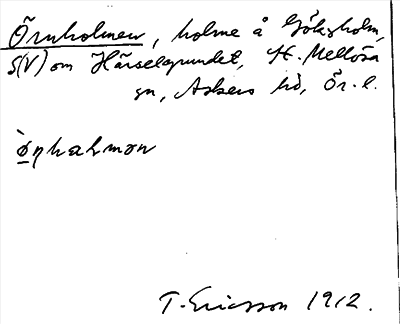 Örnholmen, holme å Göksholm,
S(V) om Hässelgrundet, St. Mellösa
sn, Askers hd, Ör. l.
ò̱ŋhaḻmən
T. Ericsson 1912.